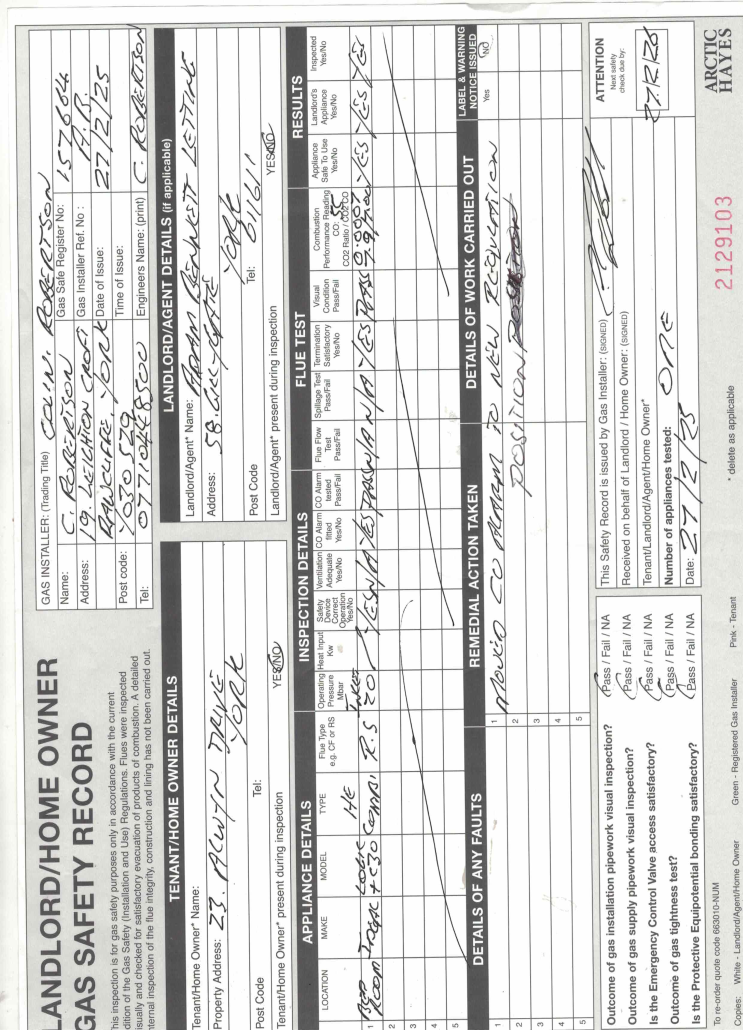 LANDLORD/HOME OWNER
GAS SAFETY RECORD
This inspection is for gas safety purposes only in accordance with the current
dition of the Gas Safety (Installation and Use) Regulations. Flues were inspected
isually and checked for satisfactory evacuation of products of combustion. A detailed
nternal inspection of the flue integrity, construction and lining has not been carried out.
GAS INSTALLER: (Trading Title) COLIN. ROBERTSON
Name: C. ROBERTSON Gas Safe Register No: 157664
Address: 19. LEIGHTON CROFT Gas Installer Ref. No : A.R.
RAWCLIFFE YORK Date of Issue: 27/2/25
Post code: YO30 5 Time of Issue:
Tel: Engineers Name: (print) C. ROBERTSON
TENANT/HOME OWNER DETAILS
Tenant/Home Owner* Name:
Property Address: 23. ALWYN DRIVE
YORK
Post Code Tel:
Tenant/Home Owner* present during inspection YES/NO
LANDLORD/AGENT DETAILS (if applicable)
Landlord/Agent* Name: ADAM BENNETT LETTING
Address: 58. GILLYGATE
YORK
Post Code Tel:
Landlord/Agent* present during inspection YES/NO
APPLIANCE DETAILS
INSPECTION DETAILS
FLUE TEST
RESULTS
LOCATION MAKE MODEL TYPE Flue Type e.g. CF or RS Operating Pressure Mbar Heat Input Kw Safety Device Correct Operation Yes/No Ventilation Adequate Yes/No CO Alarm fitted Yes/No CO Alarm tested Pass/Fail Flue Flow Test Pass/Fail Spillage Test Pass/Fail Termination Satisfactory Yes/No Visual Condition Pass/Fail Combustion Performance Reading CO: 55 CO2 Ratio / CO2 CO Appliance Safe To Use Yes/No Landlord's Appliance Yes/No Inspected Yes/No
1 BED ROOM IDEAL LOGIC + C30 HE COMBI R.S INLET 20 / YES N/A YES PASS N/A N/A YES PASS 0.0007 YES YES YES
2
3
4
5
DETAILS OF ANY FAULTS
REMEDIAL ACTION TAKEN
DETAILS OF WORK CARRIED OUT
LABEL & WARNING NOTICE ISSUED
Yes NO
1 MOVED CO ALARM TO NEW REGULATION
2 POSITION
3
4
5
Outcome of gas installation pipework visual inspection? Pass / Fail / NA
Outcome of gas supply pipework visual inspection? Pass / Fail / NA
Is the Emergency Control Valve access satisfactory? Pass / Fail / NA
Outcome of gas tightness test? Pass / Fail / NA
Is the Protective Equipotential bonding satisfactory? Pass / Fail / NA
This Safety Record is issued by Gas Installer: (SIGNED)
Received on behalf of Landlord / Home Owner: (SIGNED)
Tenant/Landlord/Agent/Home Owner*
Number of appliances tested: ONE
Date: 27/2/25
ATTENTION
Next safety
check due by:
27/2/26
To re-order quote code 663010-NUM
* delete as applicable
2129103
ARCTIC
HAYES
Copies: White - Landlord/Agent/Home Owner Green - Registered Gas Installer Pink - Tenant